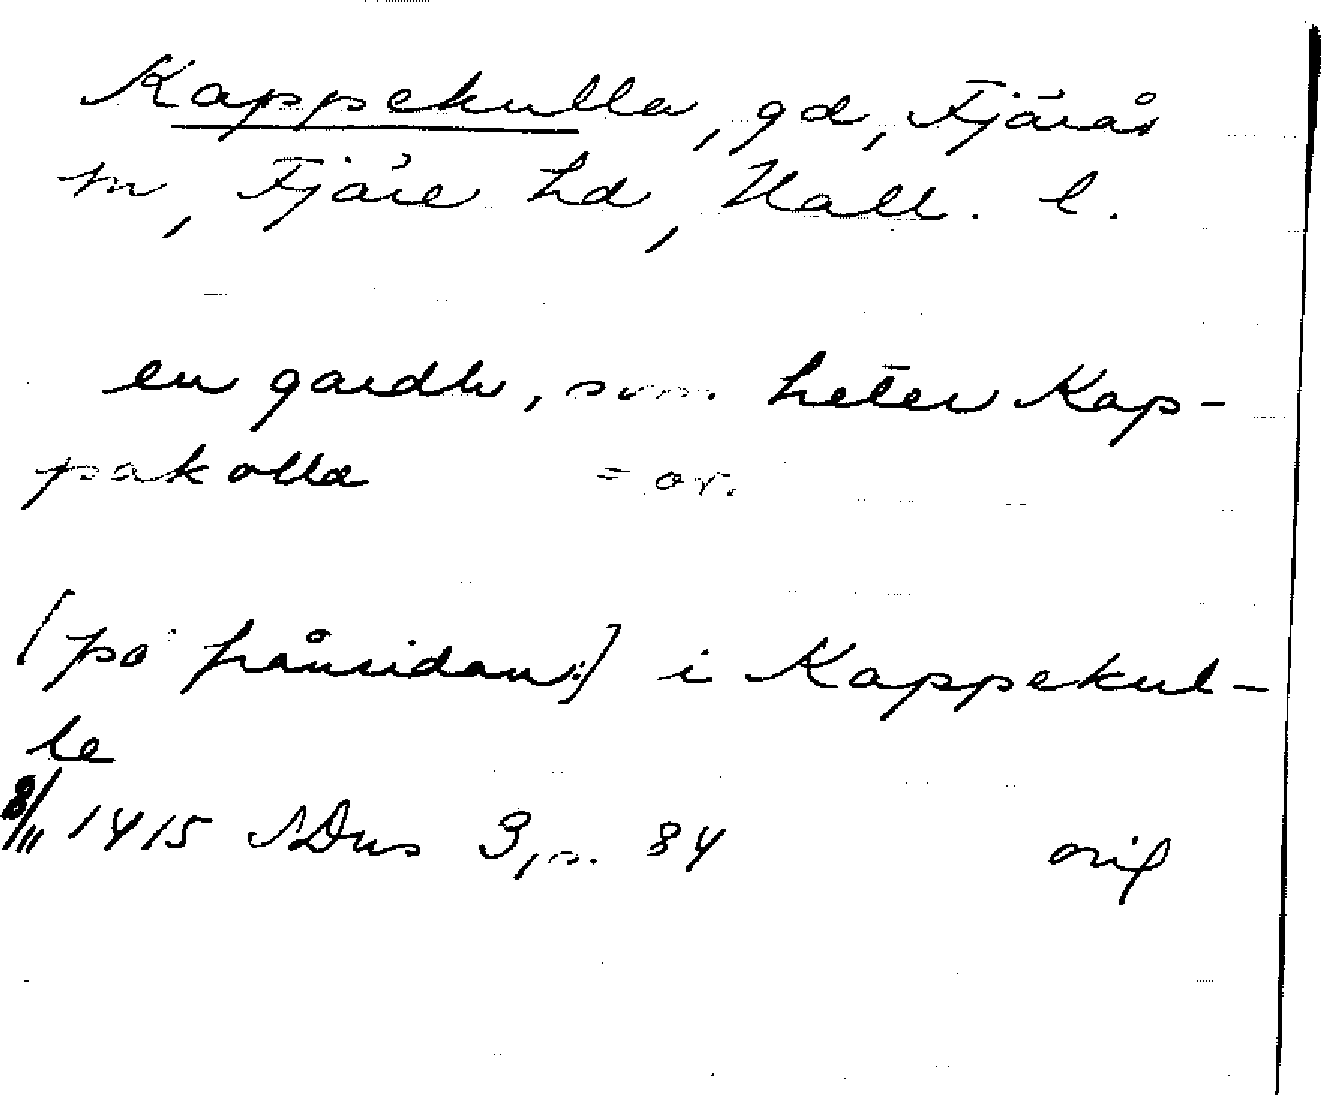 Kappekulla, gd, Fjärås
sn, Fjäre hd, Hall. l.
en gardh, som heter Kap-
pakolla = or.
[på frånsidan:] i Kappekul-
le
8/11 1415 SDns 3, s. 84 orig